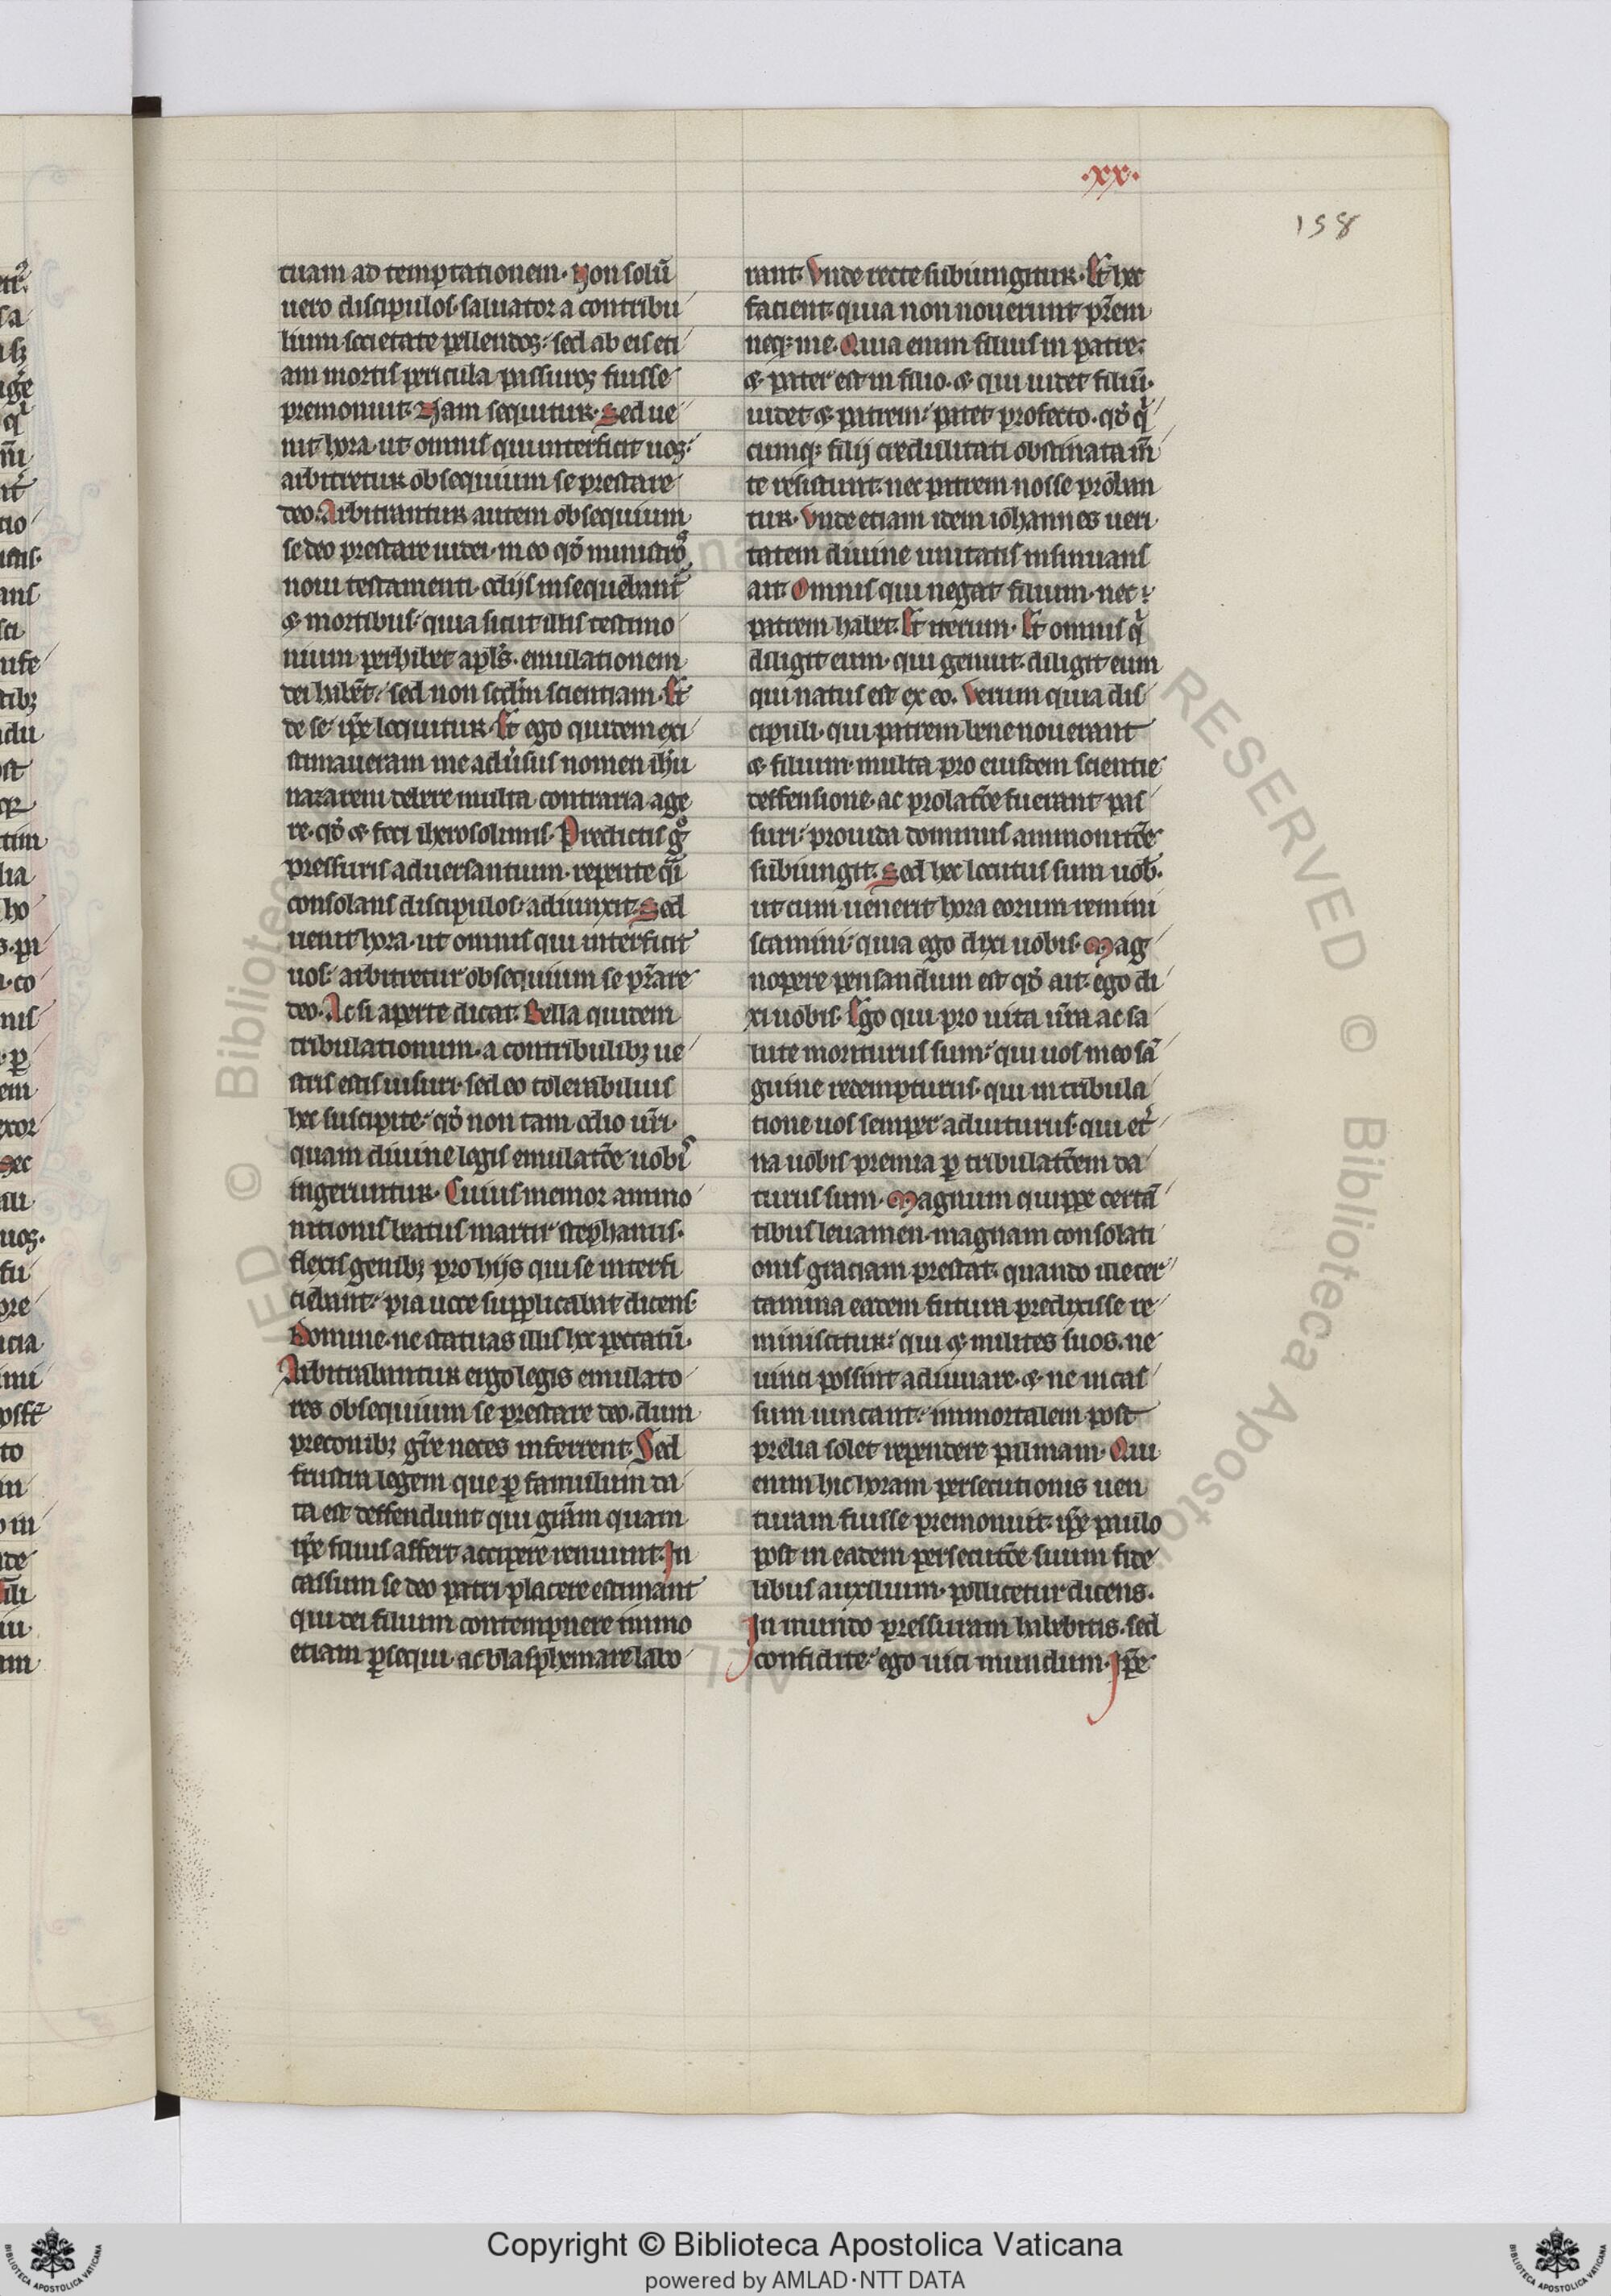 .xx.
158
tuam ad temptationem. Non solũ
uero discipulos saluator a contribu
lium societate pellendoꝫ: sed ab eis eti
am mortis pericula passuroꝫ fuisse
premonuit. Nam sequitur. Sed ue
nit hora ut omnis qui interficit uoꝫ:
arbitretur obsequium se prestare
deo. Arbitrantur autem obsequium
se deo prestare iudei. in eo qđ ministroˢ
noui testamenti. odijs insequebant᷑
⁊ mortibus. quia sicut illis testimo
nium perhibet apl̃s. emulationem
dei habẽt: sed non scdm̃ scientiam. Et
de se ip̃e loquitur. Et ego quidem exi
stimaueram me adũsus nomen ih̃u
nazareni debere multa contraria age
re. qđ ⁊ feci iherosolimis. Predictis gͦ
pressuris aduersantium. repente q̃i
consolans discipulos. adiunxit. Sed
uenit hora. ut omnis qui interficit
uos. arbitretur obsequium se p̃rare
deo. Ac si aperte dicat. Bella quidem
tribulationum. a contribulibꝫ ue
stris estis uisuri. sed eo tolerabilius
hec suscipite. qđ non tam odio ũri.
quam diuine legis emulatõe uobiˢ
ingeruntur. Cuius memor ammo
nitionis beatus martir stephanus.
flexis genibꝫ pro hijs qui se interfi
ciebant: pia uoce supplicabat dicens.
Domine. ne statuas illis hoc peccatũ.
Arbitrabantur ergo legis emulato
res obsequium se prestare deo. dum
preconibꝫ gr̃e neces inferrent. Sed
frustra legem que ꝑ famulum da
ta est deffendunt qui grãm quam
ip̃e filius affert accipere renuunt. In
cassum se deo patri placere estimant
qui dei filium contempnere immo
etiam ꝑsequi. ac blasphemare labo
rant. Unde recte subiungitur. Et hec
facient. quia non nouerunt pr̃em
neqꝫ me. Quia enim filius in patre:
⁊ pater est in filio. ⁊ qui uidet filiũ.
uidet ⁊ patrem: patet profecto. qđ qͥ
cumqꝫ filij credulitati obstinata m̃
te resistunt. nec patrem nosse proban
tur. Unde etiam idem iohannes ueri
tatem diuine unitatis insinuans
ait. Omnis qui negat filium. nec
patrem habet. Et iterum. Et omnis qͥ
diligit eum. qui genuit. diligit eum
qui natus est ex eo. Verum quia dis
cipuli. qui patrem bene nouerant
⁊ filium. multa pro eiusdem scientie
deffensione. ac prolatõe fuerant pas
suri: prouida dominus ammonitõe
subiungit. Sed hec locutus sum uob̃.
ut cum uenerit hora eorum remini
scamini. quia ego dixi uobis. Mag
nopere pensandum est qđ ait. ego di
xi uobis. Ego qui pro uita ũra ac sa
lute moriturus sum: qui uos meo sã
guine redempturus. qui in tribula
tione uos semper aduiturus. qui et᷑
na uobis premia ꝑ tribulatõem da
turus sum. Magnum quippe certã
tibus leuamen. magnam consolati
onis graciam prestat. quando ille cer
tamina eadem futura predixisse re
miniscitur: qui ⁊ milites suos. ne
uinci possint adiuuare. ⁊ ne in cas
sum uincant: immortalem post
prelia solet rependere palmam. Qui
enim hic horam persecutionis uen
turam fuisse premonuit. ip̃e paulo
post in eadem persecutõe suum fide
libus auxilium. pollicetur dicens.
In mundo pressuram habebitis. sed
confidite. ego uici mundum. Ip̃e
Copyright © Biblioteca Apostolica Vaticana
powered by AMLAD·NTT DATA